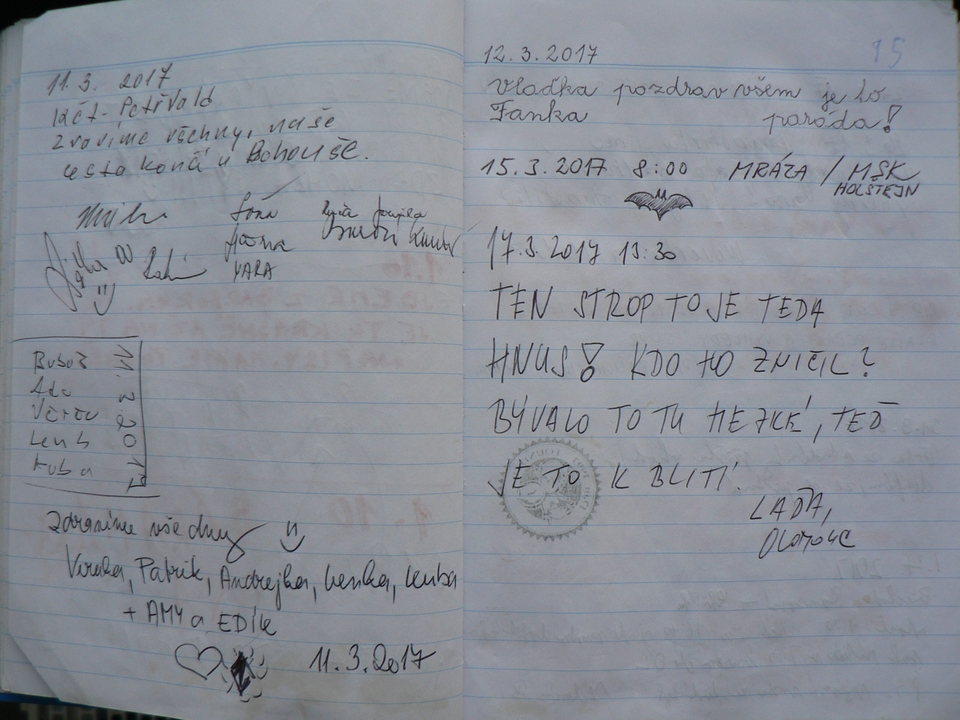 11.3. 2017
Petřvald
Zdravíme všechny, naše
cesta končí u Bohouše.
Soňa
Hana
YARA
Bubos
Ada
Lenk
Kuba
11. 3. 2017
Zdravíme všechny
Patrik, Andrejka, Lenka, Kuba
+ AMY a EDÍK
11.3.2017
15
12.3.2017
Vlaďka pozdrav všem je to
Fanka paráda!
15.3.2017 8:00 MRÁZA / MSK
HOLŠTEJN
17.3.2017 13:30
TEN STROP TO JE TEDA
HNUS! KDO HO ZNIČIL?
BÝVALO TO TU HEZKÉ, TEĎ
JE TO K BLITÍ.
LAĎA,
OLOMOUC